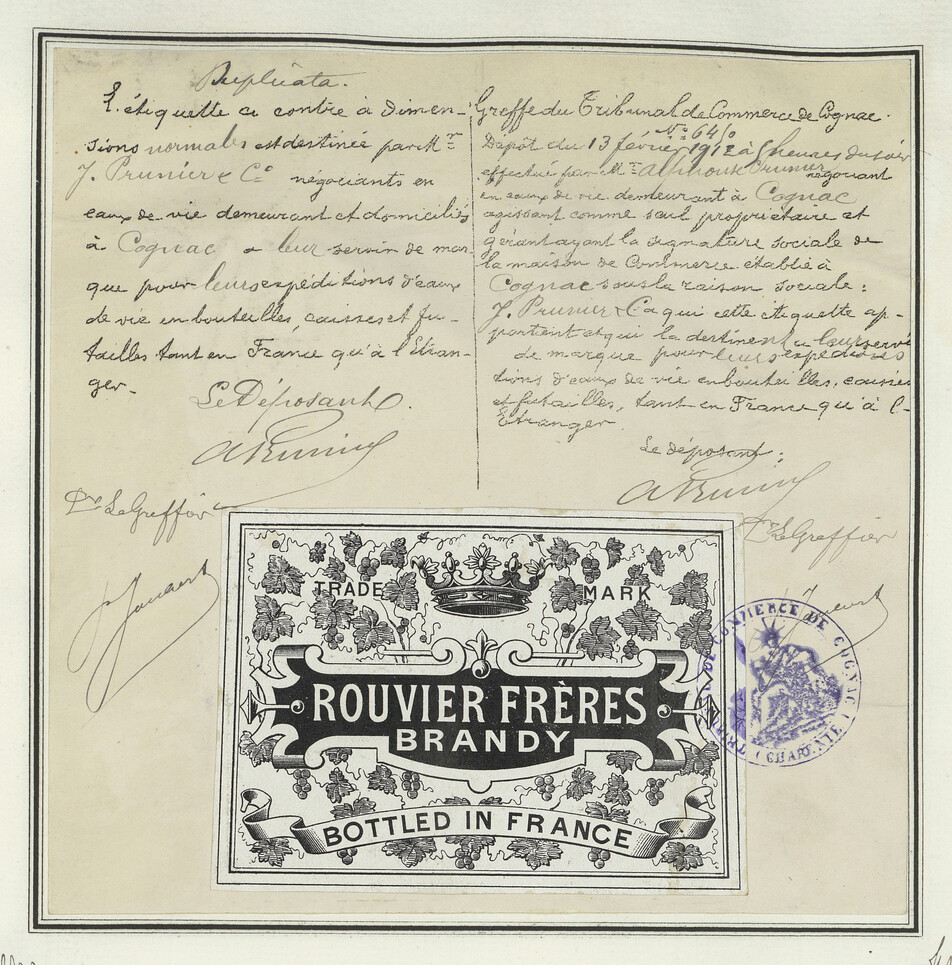 Duplicata.
L'étiquette ci contre à dimen-
sions normales est destinée par MM rs
J. Prunier & Cie négociants en
eaux de vie demeurant et domiciliés
à Cognac a leur servir de mar-
que pour leurs expéditions d'eaux
de vie en bouteilles, caisses et fu-
tailles tant en France qu'à l'Etran-
ger.
Le Déposant.
A Prunier
Pr Le Greffier
Greffe du Tribunal de Commerce de Cognac.
No 64
Dépôt du 13 février 1912 à 5 heures du soir
effectué par Mr Alphonse Prunier négociant
en eaux de vie demeurant à Cognac
agissant comme seul propriétaire et
gérant ayant la signature sociale de
la maison de Commerce établie à
Cognac sous la raison sociale:
J. Prunier & Ca qui cette étiquette ap-
partient et qui la destinent a leur servir
de marque pour leurs expéditions
tions d'eaux de vie en bouteilles, caisses
et futailles, tant en France qu'à l'-
Etranger.
Le déposant:
A Prunier
Pr Le Greffier
TRADE MARK
ROUVIER FRÈRES
BRANDY
BOTTLED IN FRANCE
DE COMMERCE DE COGNAC
(CHARENTE)